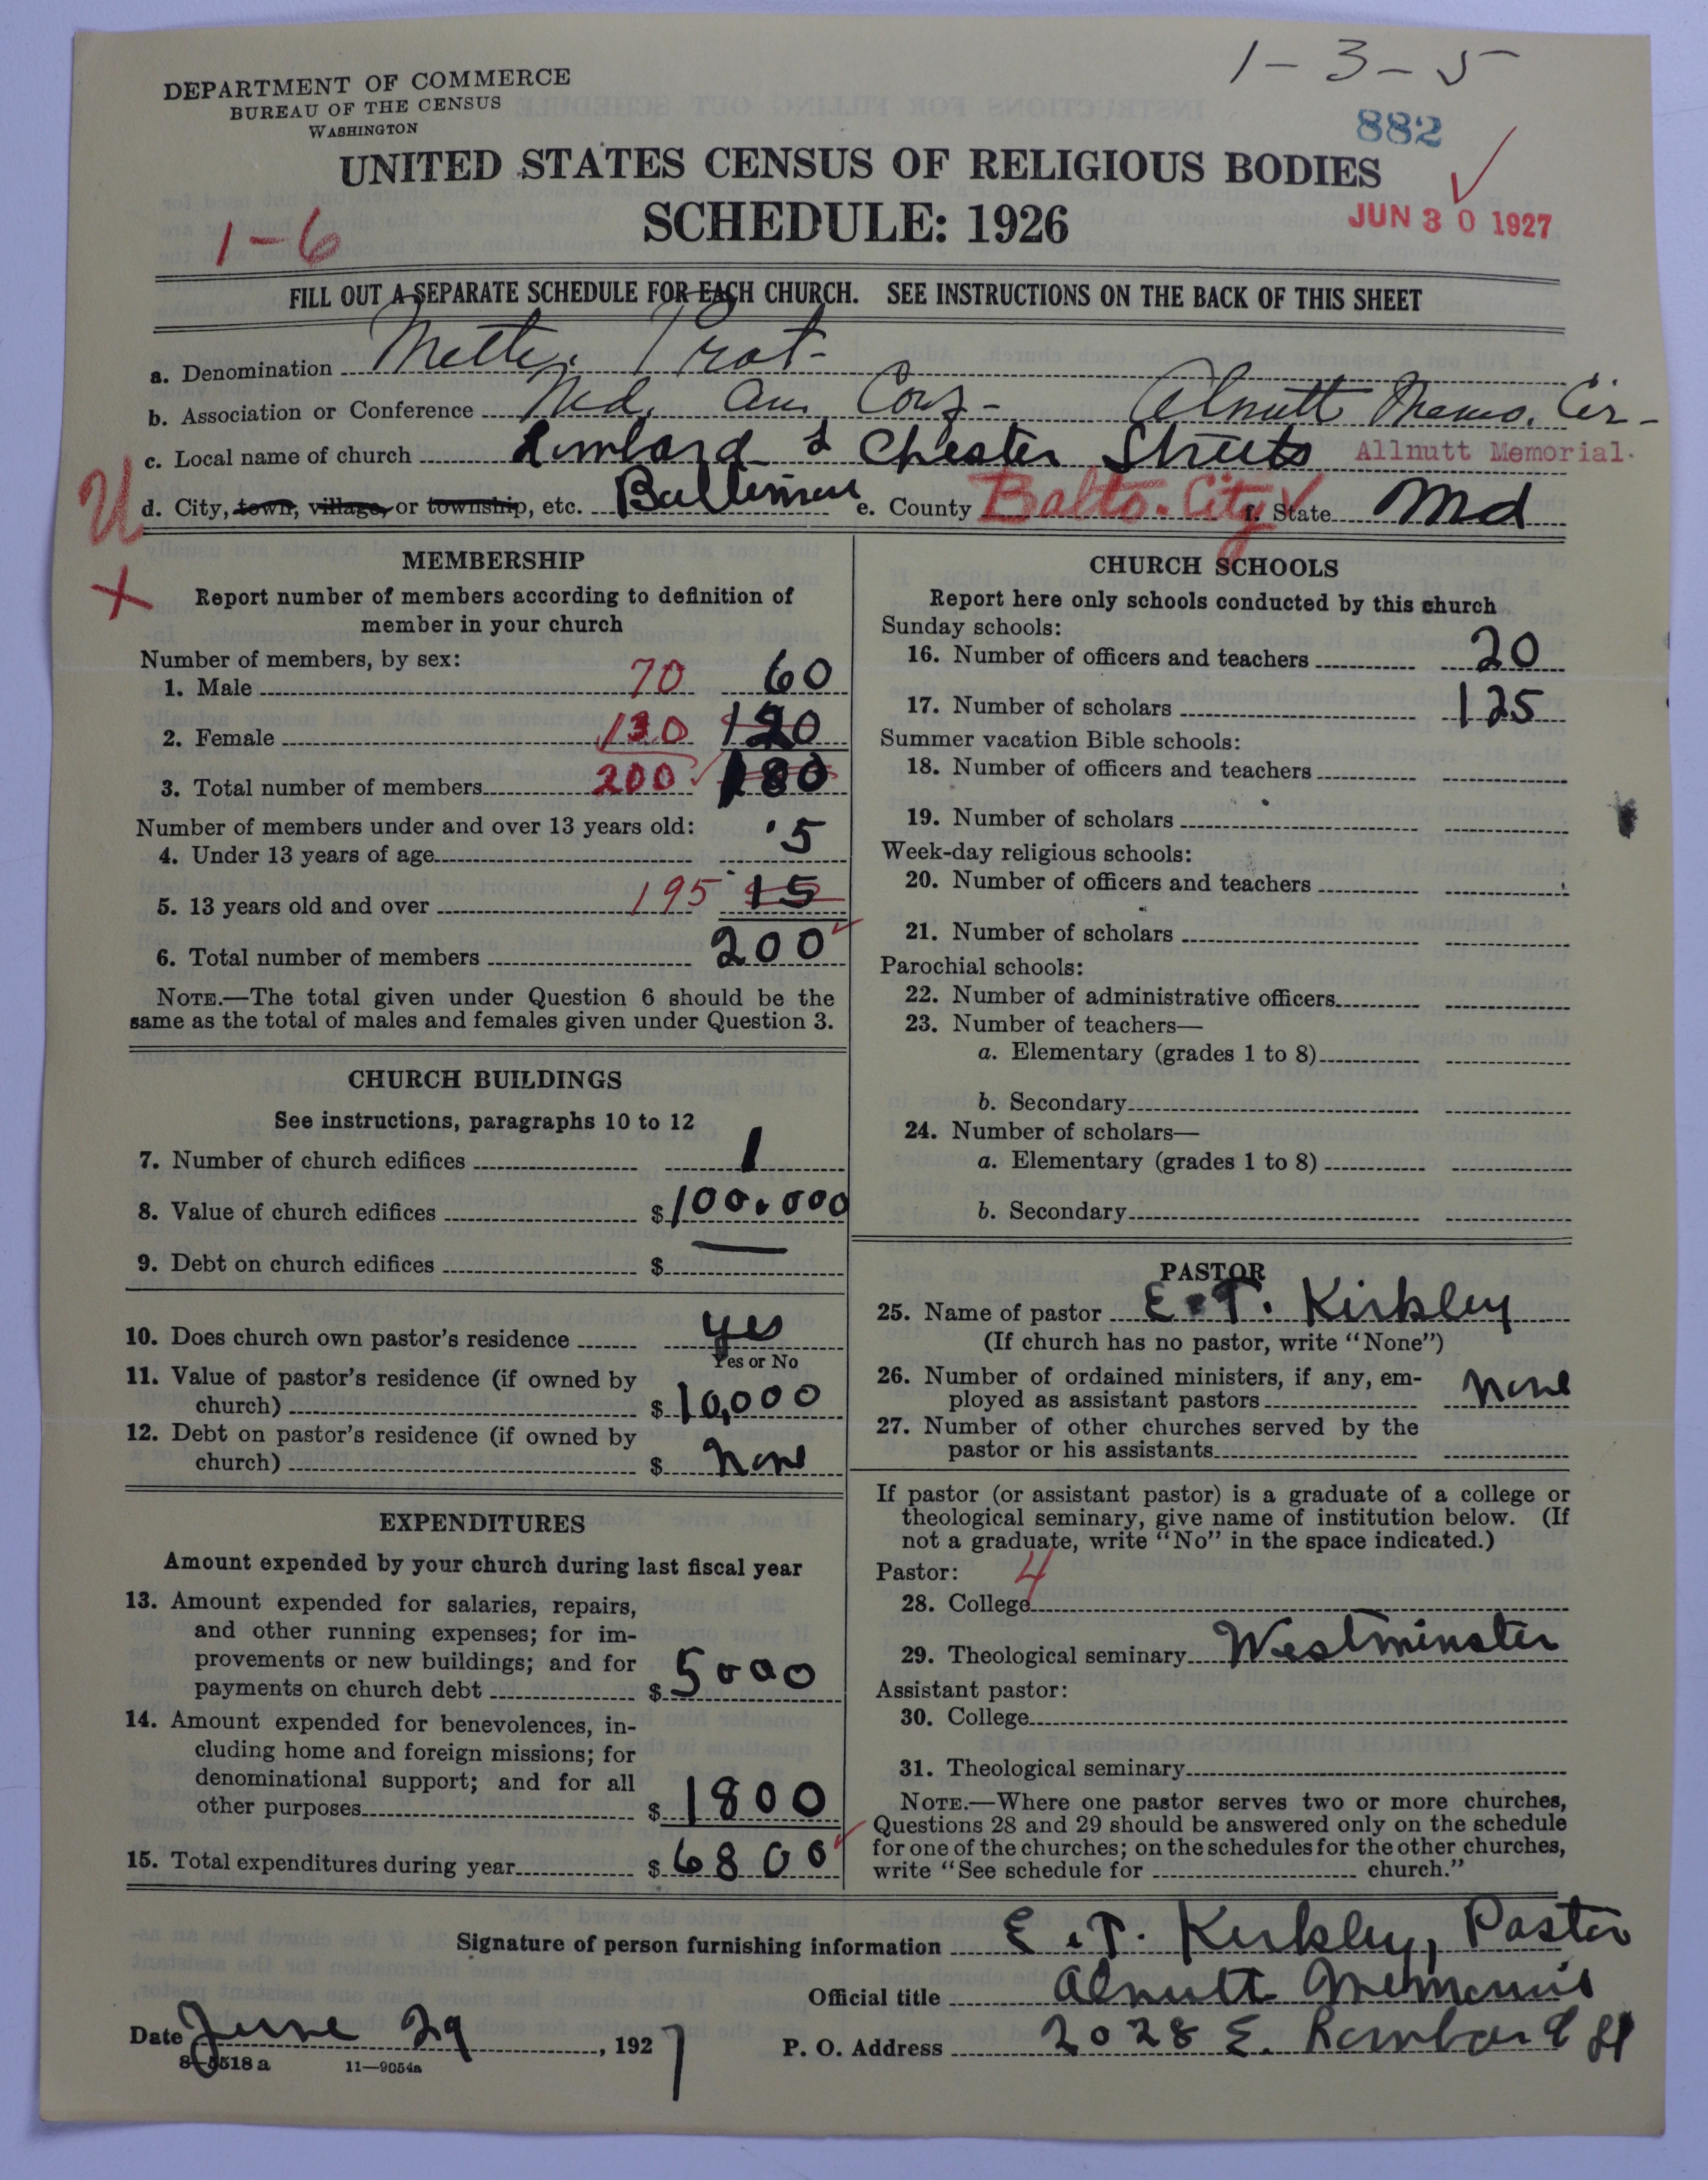 1-3-5
DEPARTMENT OF COMMERCE
BUREAU OF THE CENSUS
WASHINGTON
882
UNITED STATES CENSUS OF RELIGIOUS BODIES
SCHEDULE: 1926
JUN 30 1927
1-6
FILL OUT A SEPARATE SCHEDULE FOR EACH CHURCH. SEE INSTRUCTIONS ON THE BACK OF THIS SHEET
a. Denomination Meth. Prot-
b. Association or Conference Md. Ann. Conf- Alnutt Memo. Cir-
c. Local name of church Lombard & Chester Streets Allnutt Memorial.
d. City, town, village, or township, etc. Baltimore e. County Balto. City f. State Md
MEMBERSHIP
Report number of members according to definition of
member in your church
Number of members, by sex:
1. Male 70 60
2. Female 130 120
3. Total number of members 200 180
Number of members under and over 13 years old:
4. Under 13 years of age 5
5. 13 years old and over 195 15
6. Total number of members 200
NOTE.—The total given under Question 6 should be the
same as the total of males and females given under Question 3.
CHURCH BUILDINGS
See instructions, paragraphs 10 to 12
7. Number of church edifices 1
8. Value of church edifices $100.000
9. Debt on church edifices $ —
10. Does church own pastor's residence yes
Yes or No
11. Value of pastor's residence (if owned by
church) $10,000
12. Debt on pastor's residence (if owned by
church) $ None
EXPENDITURES
Amount expended by your church during last fiscal year
13. Amount expended for salaries, repairs,
and other running expenses; for im-
provements or new buildings; and for
payments on church debt $5000
14. Amount expended for benevolences, in-
cluding home and foreign missions; for
denominational support; and for all
other purposes $1800
15. Total expenditures during year $6800
CHURCH SCHOOLS
Report here only schools conducted by this church
Sunday schools:
16. Number of officers and teachers 20
17. Number of scholars 125
Summer vacation Bible schools:
18. Number of officers and teachers
19. Number of scholars
Week-day religious schools:
20. Number of officers and teachers
21. Number of scholars
Parochial schools:
22. Number of administrative officers
23. Number of teachers—
a. Elementary (grades 1 to 8)
b. Secondary
24. Number of scholars—
a. Elementary (grades 1 to 8)
b. Secondary
PASTOR
25. Name of pastor E. T. Kirkley
(If church has no pastor, write "None")
26. Number of ordained ministers, if any, em-
ployed as assistant pastors none
27. Number of other churches served by the
pastor or his assistants
If pastor (or assistant pastor) is a graduate of a college or
theological seminary, give name of institution below. (If
not a graduate, write "No" in the space indicated.)
Pastor: 4
28. College
29. Theological seminary Westminster
Assistant pastor:
30. College
31. Theological seminary
NOTE.—Where one pastor serves two or more churches,
Questions 28 and 29 should be answered only on the schedule
for one of the churches; on the schedules for the other churches,
write "See schedule for church."
Signature of person furnishing information E. T. Kirkley, Pastor
Official title Alnutt Memorial
Date June 29, 1927 P. O. Address 2028 E. Lombard St
8-5518 a 11—9054a